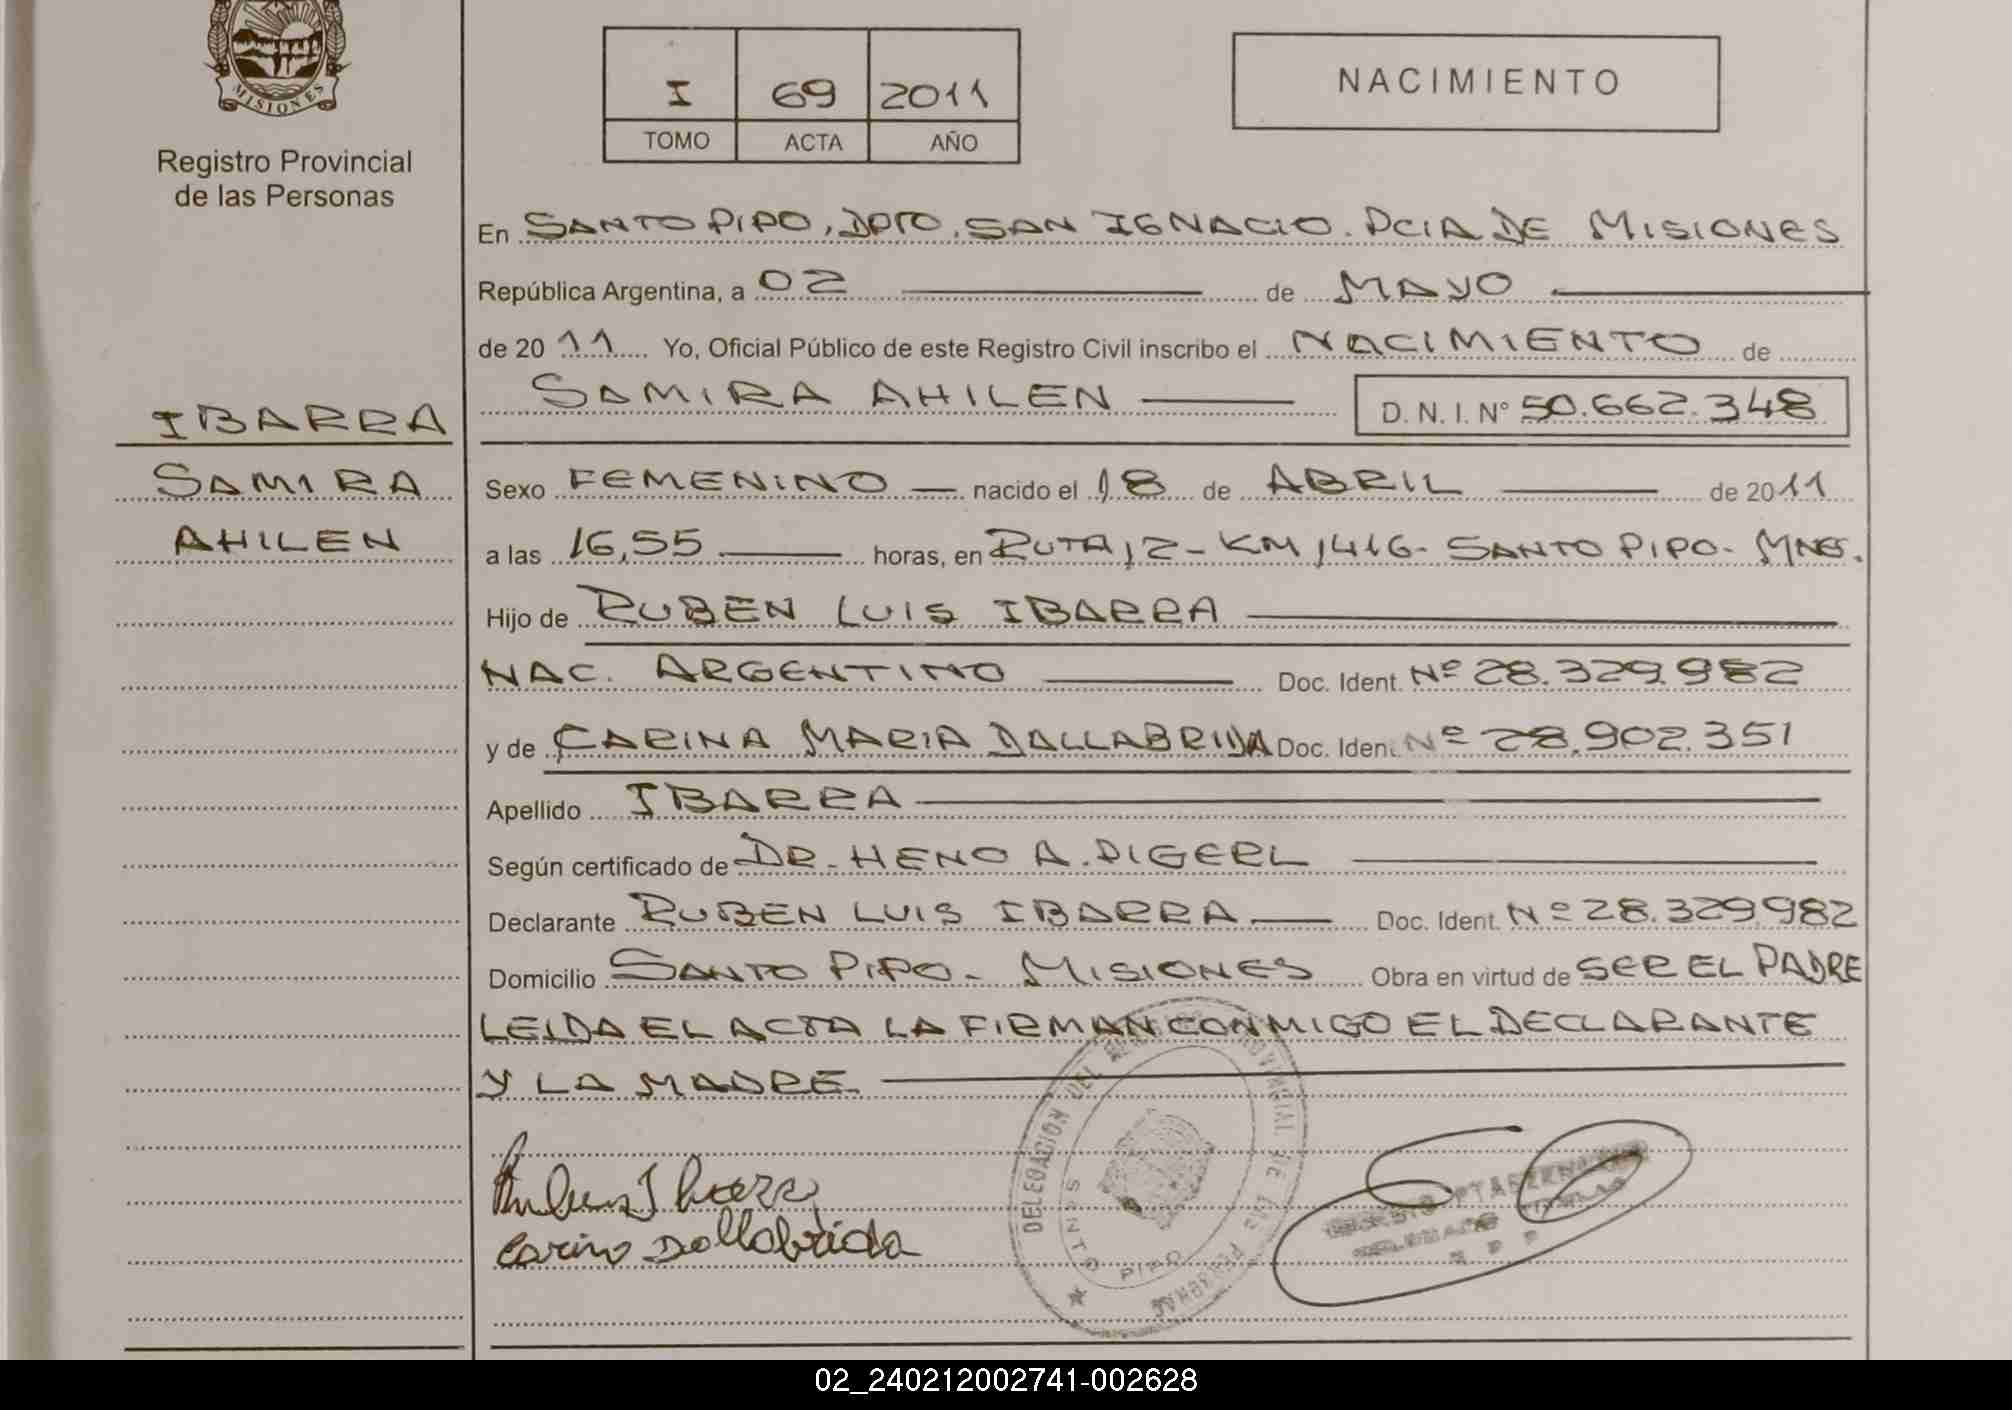 MISIONES
Registro Provincial
de las Personas
IBARRA
SAMIRA
AHILEN
I 69 2011
TOMO ACTA AÑO
NACIMIENTO
En SANTO PIPO, DPTO. SAN IGNACIO. PCIA DE MISIONES
República Argentina, a 02 de MAYO
de 2011 Yo, Oficial Público de este Registro Civil inscribo el NACIMIENTO de
SAMIRA AHILEN D. N. I. N° 50.662.348
Sexo FEMENINO nacido el 18 de ABRIL de 2011
a las 16,55 horas, en RUTA 12 - KM 1416 - SANTO PIPO - MNES.
Hijo de RUBEN LUIS IBARRA
NAC. ARGENTINO Doc. Ident. Nº 28.329.982
y de CARINA MARIA DALLABRIDA Doc. Iden. Nº 28.902.351
Apellido IBARRA
Según certificado de DR. HENO A. DIGERL
Declarante RUBEN LUIS IBARRA Doc. Ident. Nº 28.329.982
Domicilio SANTO PIPO - MISIONES Obra en virtud de SER EL PADRE
LEIDA EL ACTA LA FIRMAN CONMIGO EL DECLARANTE
Y LA MADRE.
Ruben Ibarra
Carina Dallabrida
DELEGACION DEL REGISTRO PROVINCIAL DE LAS PERSONAS
SANTO PIPO
02_240212002741-002628